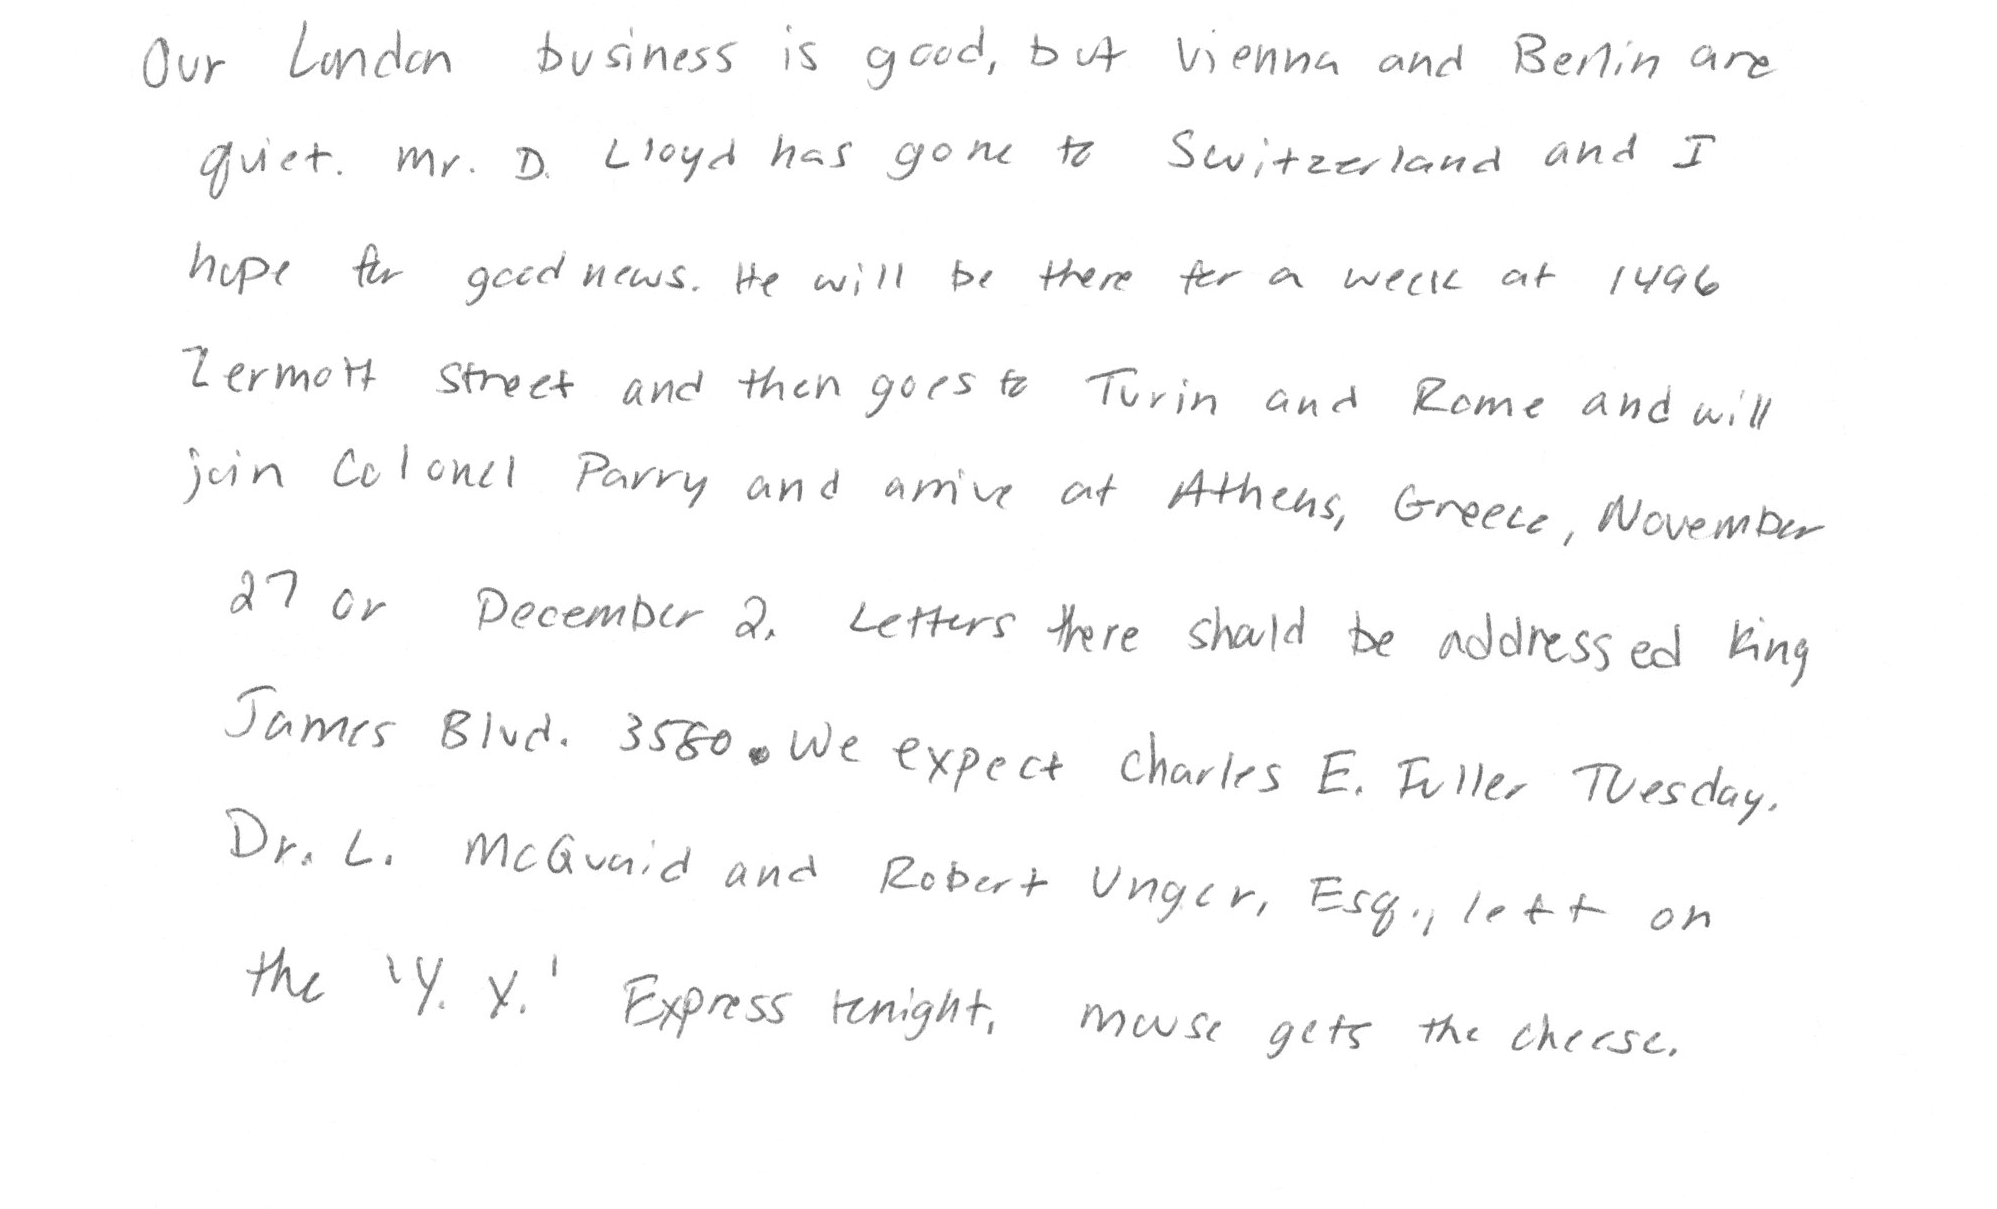 Our London business is good, but Vienna and Berlin are
quiet. Mr. D. Lloyd has gone to Switzerland and I
hope for good news. He will be there for a week at 1496
Zermott Street and then goes to Turin and Rome and will
join Colonel Parry and arrive at Athens, Greece, November
27 or December 2. Letters there should be addressed King
James Blvd. 3580. We expect Charles E. Fuller Tuesday.
Dr. L. McQuaid and Robert Unger, Esq., left on
the 'Y. X.' Express tonight. mouse gets the cheese.